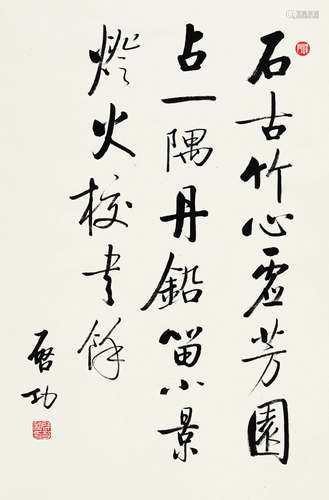 石古竹心虚芳園
占一隅丹鉛留小景
燈火校書餘
啓功